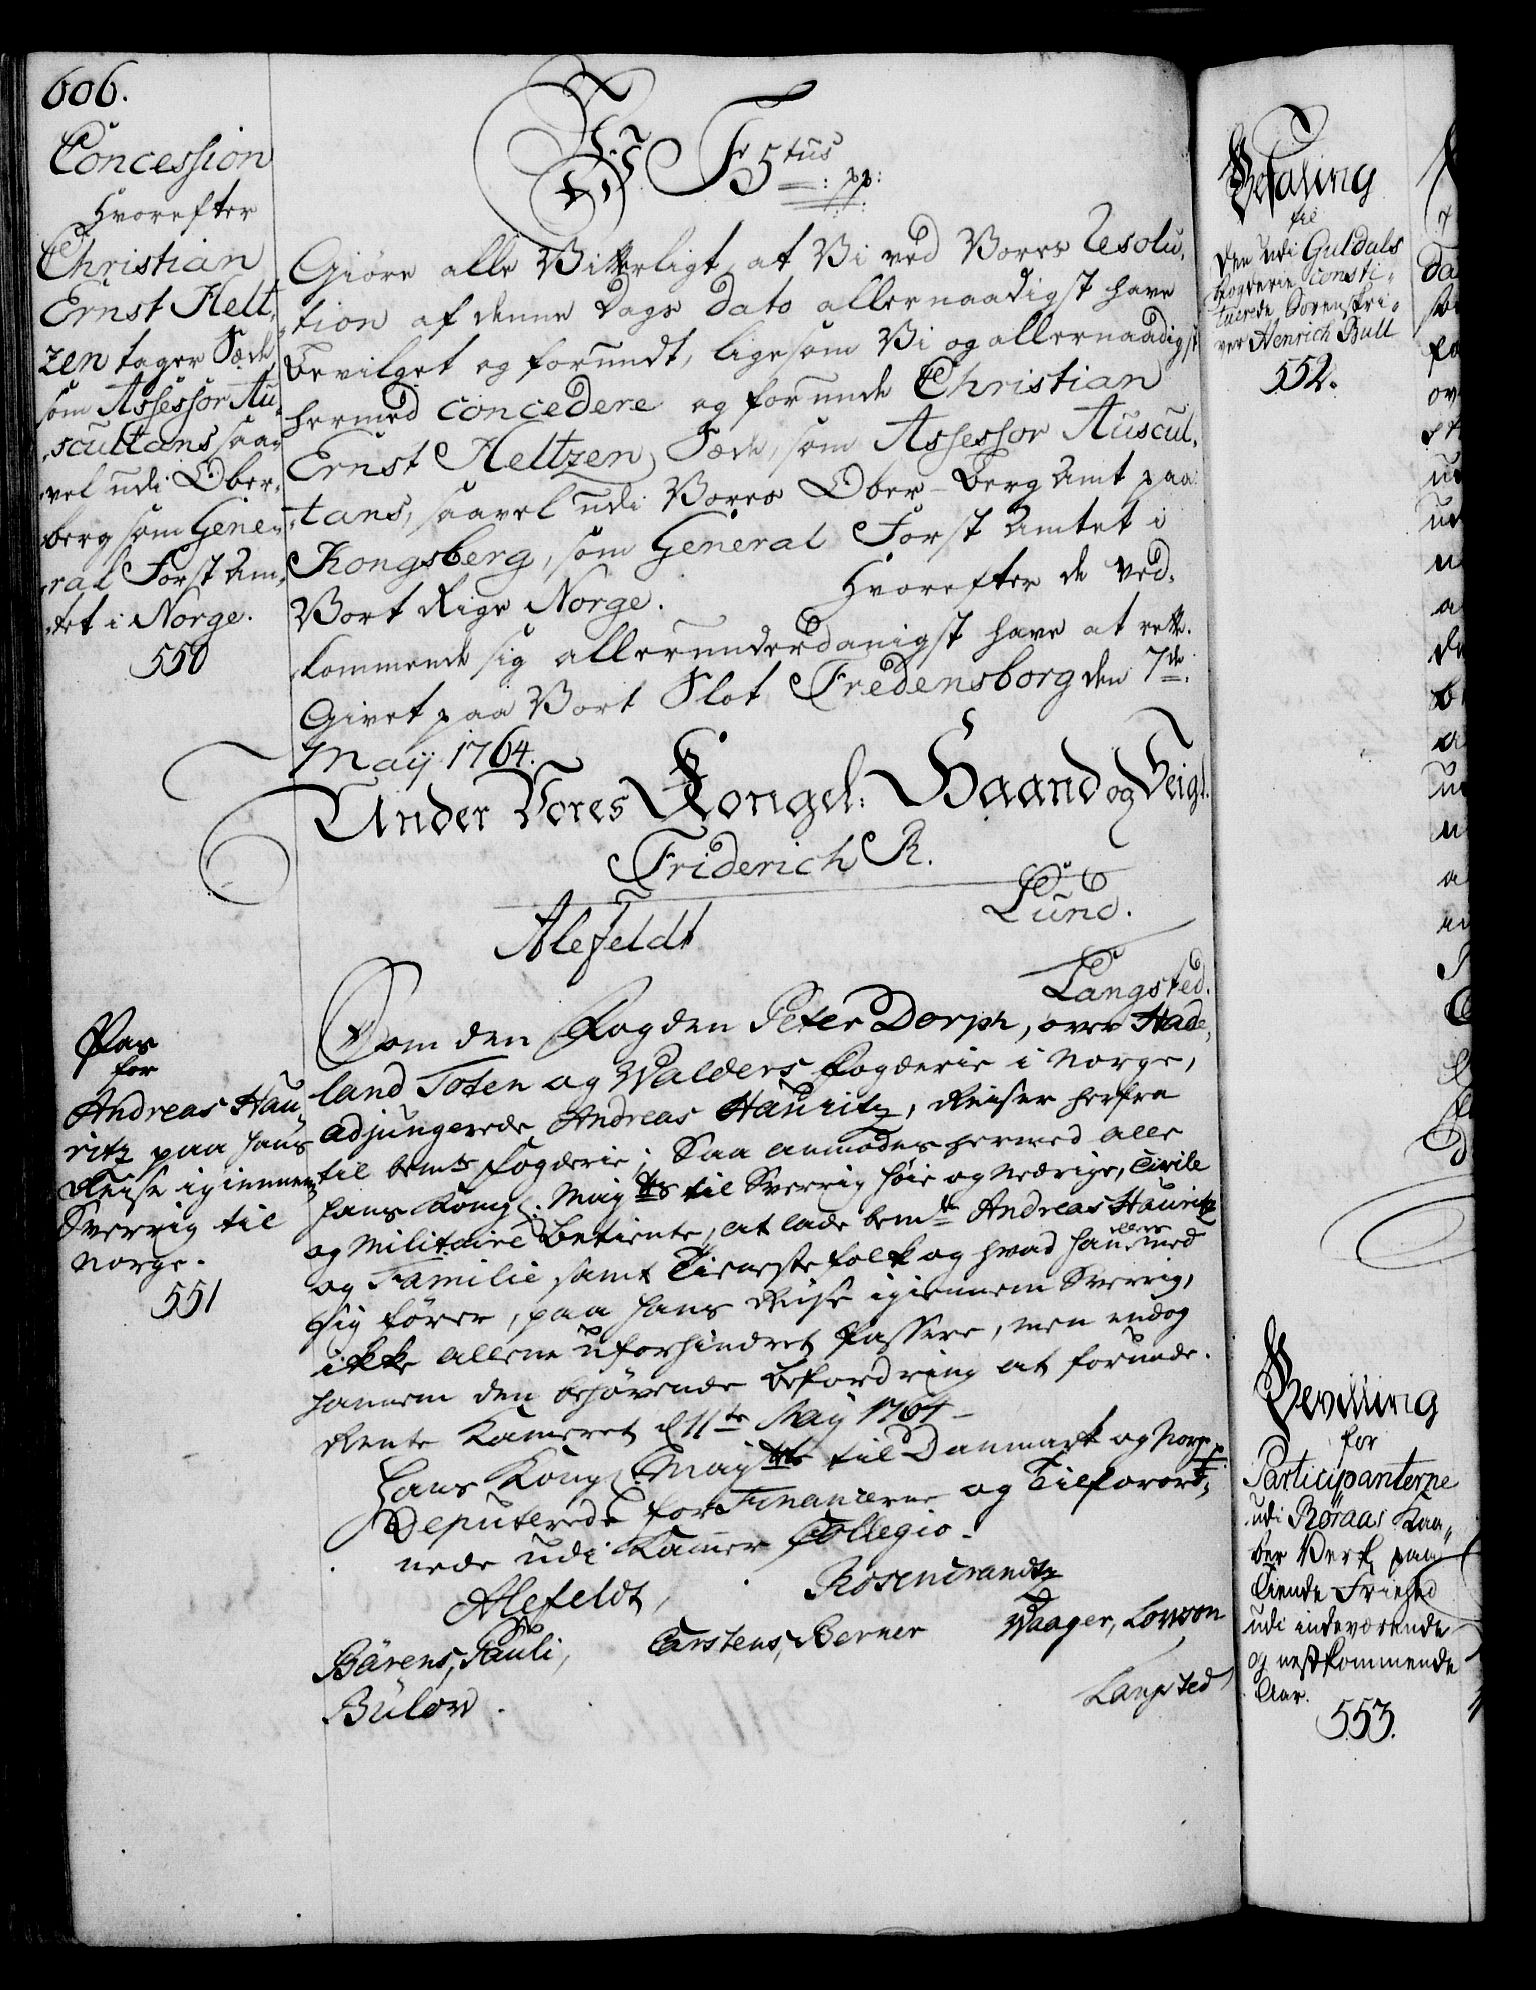 606.
Concession
hvorefter
Christian
Ernst Helt,
zen tager Sæde
som Assessor Au,
,scultans saa,
,vel udi Ober,
,berg som Gene,
,ral Forst Am,
,tet i Norge.
550
F 5tus
pp:
Giøre alle Vitterligt, at Vi ved Vores Resolu,
,tion af denne Dags Dato allernaadigst have
bevilget og forundt, ligesom Vi og allernaadigst
hermed concedere og forunde Christian
Ernst Heltzen Sæde, som Assessor Auscul,
,tans, saavel udi Vores Ober-Berg Amt paa
Kongsberg, som General Forst Amtet i
Vort Rige Norge. Hvorefter de ved,
,kommende sig allerunderdanigst have at rette.
Givet paa Vort Slot Fredensborg den 7de
May 1764.
Under Vores Kongel: Haand og Seigl.
Friderich R.
Lund.
Alefeldt
Langsted.
Pas
for
Andreas Hau,
ritz paa hans
Reise igiennem
Sverrig til
Norge.
551
Som den Fogden Peter Dorph, over Hade,
land Toten og Walders Fogderie i Norge,
adjungerede Andreas Hauritz, Reiser herfra
til bemte Fogderie; Saa anmodes hermed alle
hans Kongl. Mayts til Sverrig høie og nedrige, Civile
og Militaire Betiente, at lade bemte Andreas Hauritz
og Familie samt Tienestefolk og hvad han ellers med
sig fører, paa hans Reise igiennem Sverrig,
ikke allene uforhindret Passere, men endog
hannem den behøvende Befordring at forunde.
Rente Kameret d 11te May 1764
Hans Kongl. Mayts til Danmark og Norge
Deputerede for Financerne og Tilforord,
nede udi Kammer Collegio.
Alefeldt, Rosencrandtz
Bärens, Pauli, Carstens, Berner Waager, Lowson
Bülow. Langsted
Befaling
til
den udi Guldals
Fogderie consti,
tuerede Sorenskri,
ver Henrich Bull
552.
Bevilling
for
Participanterne
udi Røraas Kaa,
ber Verk paa
Tiende Friehed
udi indeværende
og nestkommende
Aar.
553.